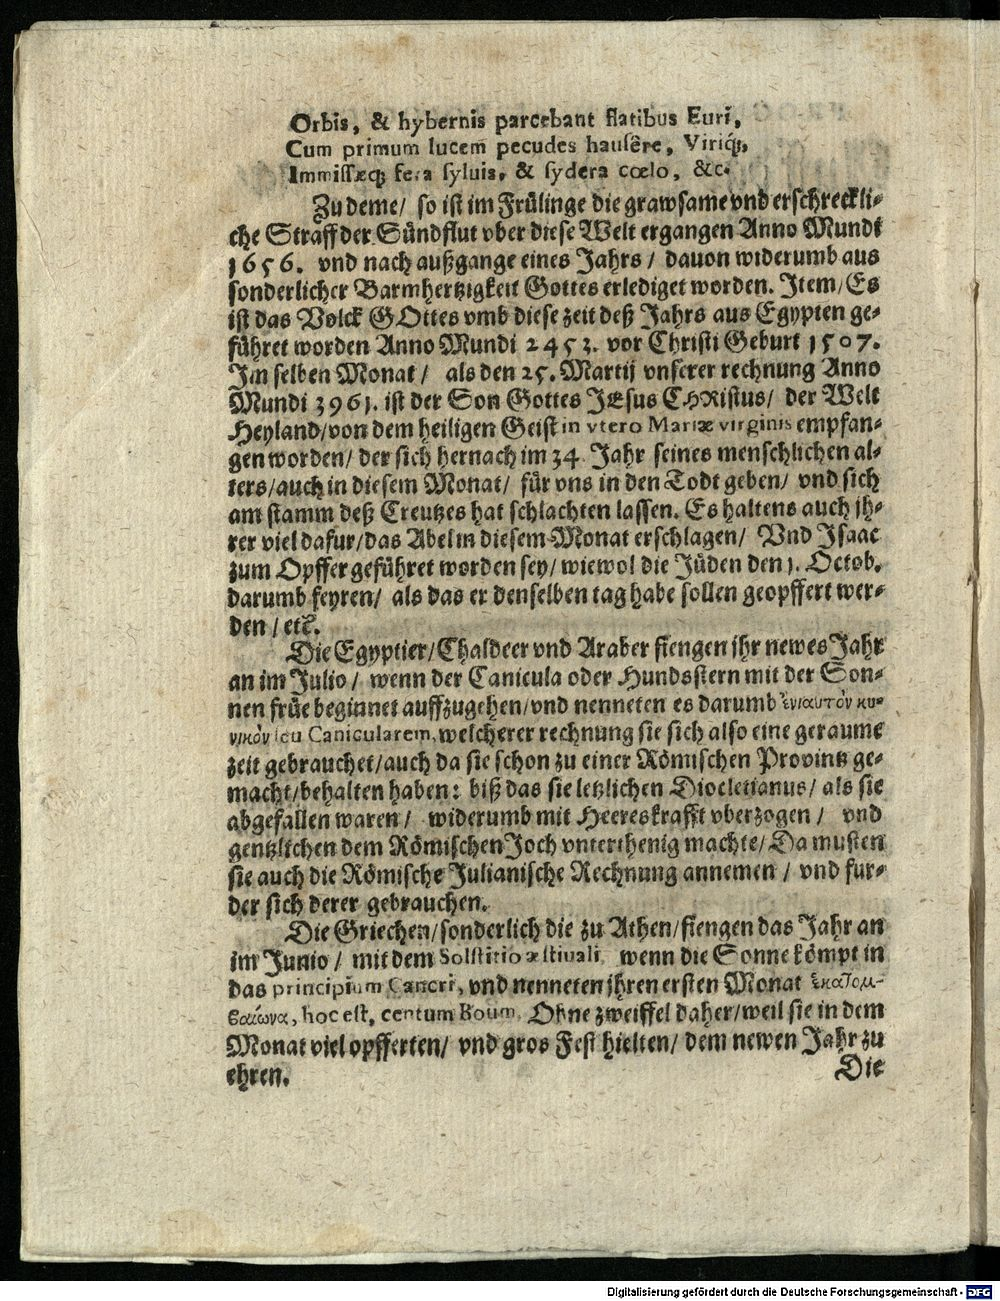 Orbis, & hybernis parcebant flatibus Euri,
Cum primum lucem pecudes hausêre, Viriq́;,
Immissæq; fera syluis, & sydera cœlo, &c.
Zu deme/ so ist im Frülinge die grawsame vnd erschreckli-
che Straff der Sündflut vber diese Welt ergangen Anno Mundi
1656. vnd nach außgange eines Jahrs/ dauon widerumb aus
sonderlicher Barmhertzigkeit Gottes erlediget worden. Item/ Es
ist das Volck GOttes vmb diese zeit deß Jahrs aus Egypten ge-
führet worden Anno Mundi 2453. vor Christi Geburt 1507.
Im selben Monat/ als den 25. Martij vnserer rechnung Anno
Mundi 3961. ist der Son Gottes JEsus CHRistus/ der Welt
Heyland/ von dem heiligen Geist in vtero Mariæ virginis empfan-
gen worden/ der sich hernach im 34. Jahr seines menschlichen al-
ters/ auch in diesem Monat/ für vns in den Todt geben/ vnd sich
am stamm deß Creutzes hat schlachten lassen. Es haltens auch jh-
rer viel dafur/ das Abel in diesem Monat erschlagen/ Vnd Isaac
zum Opffer geführet worden sey/ wiewol die Jüden den 1. Octob.
darumb feyren/ als das er denselben tag habe sollen geopffert wer-
den/ etc.
Die Egyptier/ Chaldeer vnd Araber fiengen ihr newes Jahr
an im Julio/ wenn der Canicula oder Hundsstern mit der Son-
nen früe beginnet auffzugehen/ vnd nenneten es darumb ἐνιαυτὸν κυ-
νικὸν seu Canicularem, welcherer rechnung sie sich also eine geraume
zeit gebrauchet/ auch da sie schon zu einer Römischen Provintz ge-
macht/ behalten haben: biß das sie letzlichen Diocletianus/ als sie
abgefallen waren/ widerumb mit Heereskrafft vberzogen/ vnd
gentzlichen dem Römischen Joch vnterthenig machte/ Da musten
sie auch die Römische Julianische Rechnung annemen/ vnd fur-
der sich derer gebrauchen.
Die Griechen/ sonderlich die zu Athen/ fiengen das Jahr an
im Junio/ mit dem Solstitio æstiuali, wenn die Sonne kömpt in
das principium Cancri, vnd nenneten jhren ersten Monat ἑκατομ-
βαιῶνα, hoc est, centum Boum, Ohne zweiffel daher/ weil sie in dem
Monat viel opfferten/ vnd gros Fest hielten/ dem newen Jahr zu
ehren.
Die
Digitalisierung gefördert durch die Deutsche Forschungsgemeinschaft - DFG